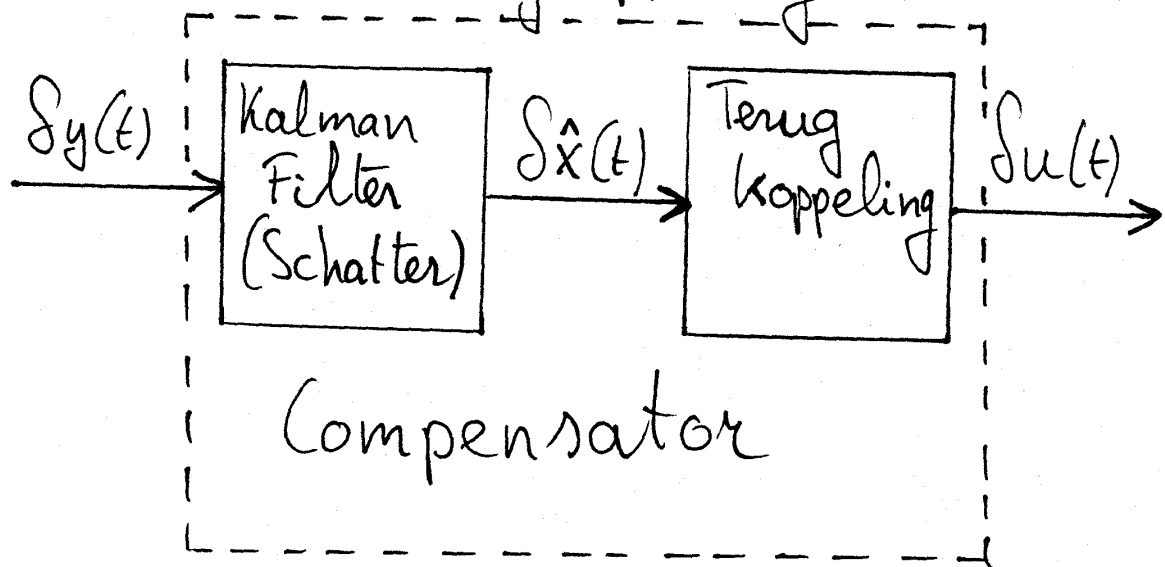 δy(t)
Kalman
Filter
(Schatter)
δx̂(t)
Terug
Koppeling
δu(t)
Compensator